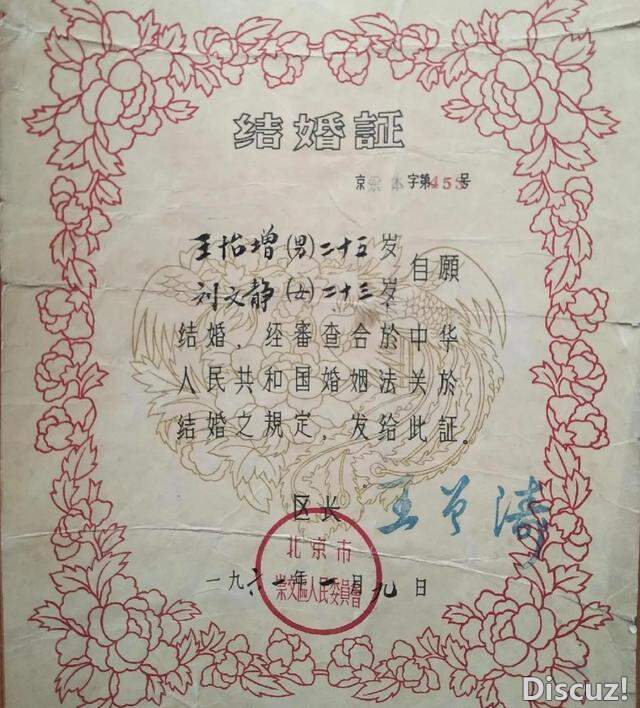 结婚証
京崇体字第453号
王怡增(男)二十五岁
刘文静(女)二十三岁
自願
结婚，经審查合於中华
人民共和国婚姻法关於
结婚之規定，发给此証。
区长
北京市
崇文區人民委員會
一九六一年一月九日
Discuz!